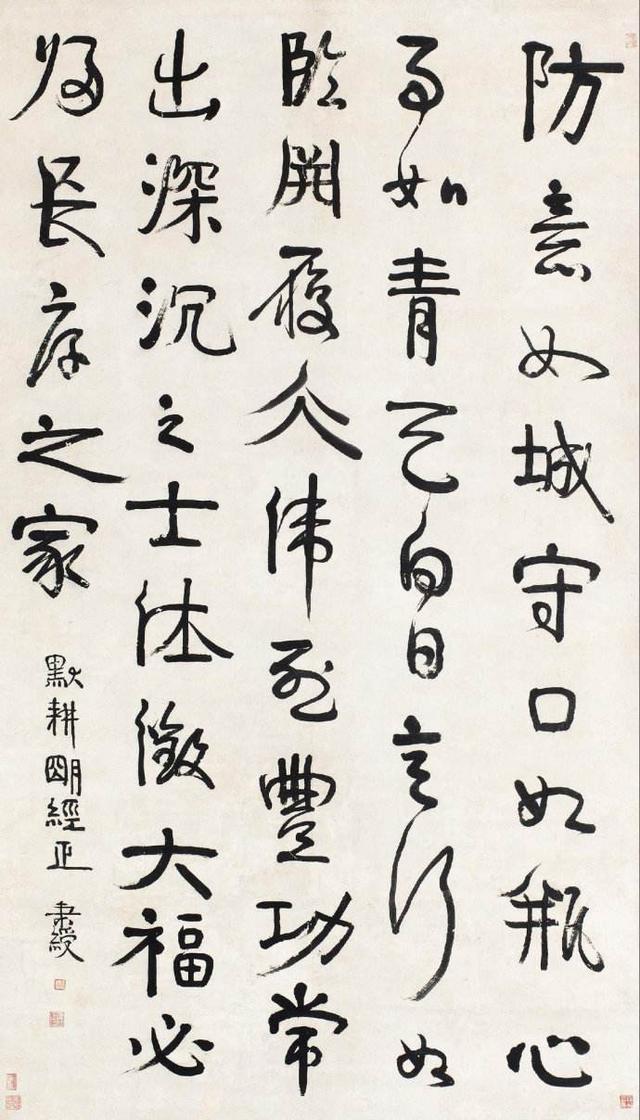 防意如城守口如瓶心
事如青天白日言行如
臨淵履仌偉烈豐功常
出深沉之士休徵大福必
歸長厚之家
默耕明經正 秉綬